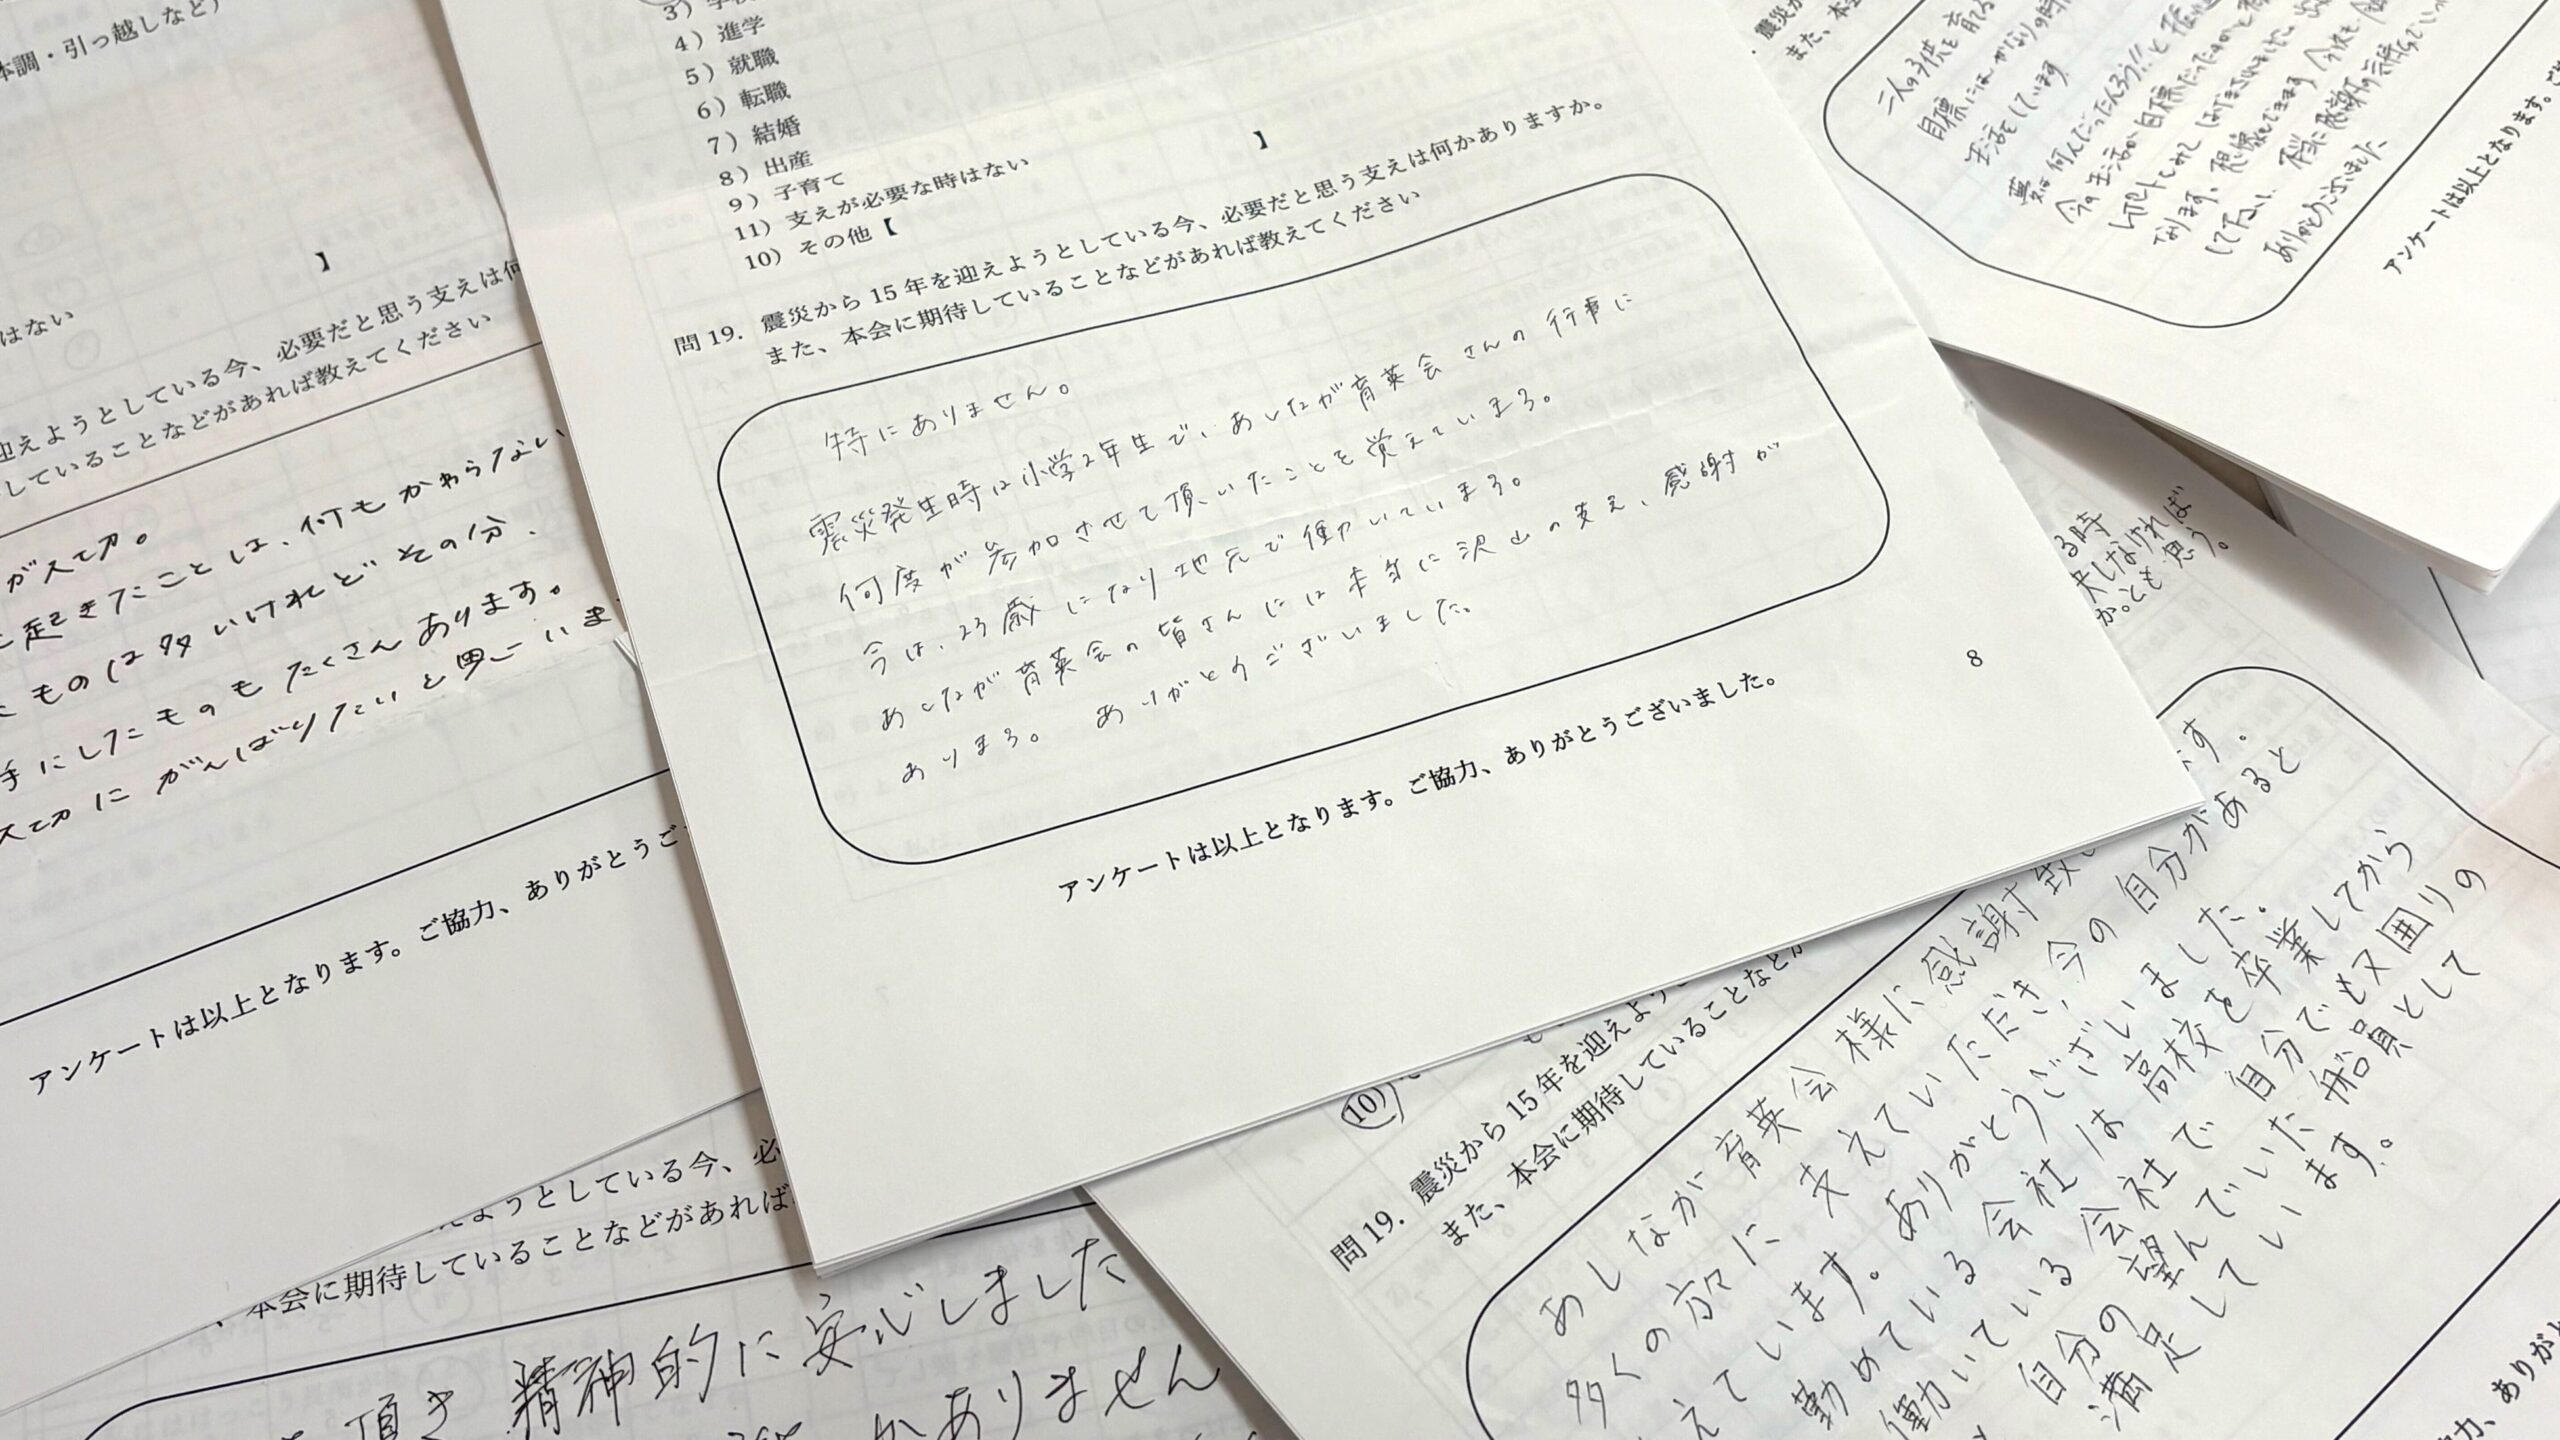 本調・引っ越しなど）
】
はない
迎えようとしている今、必要だと思う支えは何
していることなどがあれば教えてください
起きたことは、何もかわらない
ものは多いけれどその分、
手にしたものもたくさんあります。
にがんばりたいと思っていま
アンケートは以上となります。ご協力、ありがとうご
4）進学
5）就職
6）転職
7）結婚
8）出産
9）子育て
11）支えが必要な時はない
10）その他【 】
問 19. 震災から 15 年を迎えようとしている今、必要だと思う支えは何かありますか。
また、本会に期待していることなどがあれば教えてください
特にありません。
震災発生時は小学2年生で、あしなが育英会さんの行事に
何度が参加させて頂いたことを覚えています。
今は、23歳になり地元で働いています。
あしなが育英会の皆さんには本当に沢山の支え、感謝が
あります。 ありがとうございました。
アンケートは以上となります。ご協力、ありがとうございました。
8
二人の子供を育てる
生活をしています
ありがとうございました
アンケートは以上となります。
る時
しなければ
かとも思う。
ようとしている今、必
本会に期待していることなどがあれば
頂き 精神的に安心しました
かありません
10）
問 19. 震災から 15 年を迎えよう
また、本会に期待していることなどが
あしなが育英会様に感謝致し
ます。
多くの方々に支えていただき今の自分があると
えています。ありがとうございました。
勤めている会社は高校を卒業してから
働いている会社で自分でも又囲りの
自分の望んでいた船員として
満足しています。
力、ありが